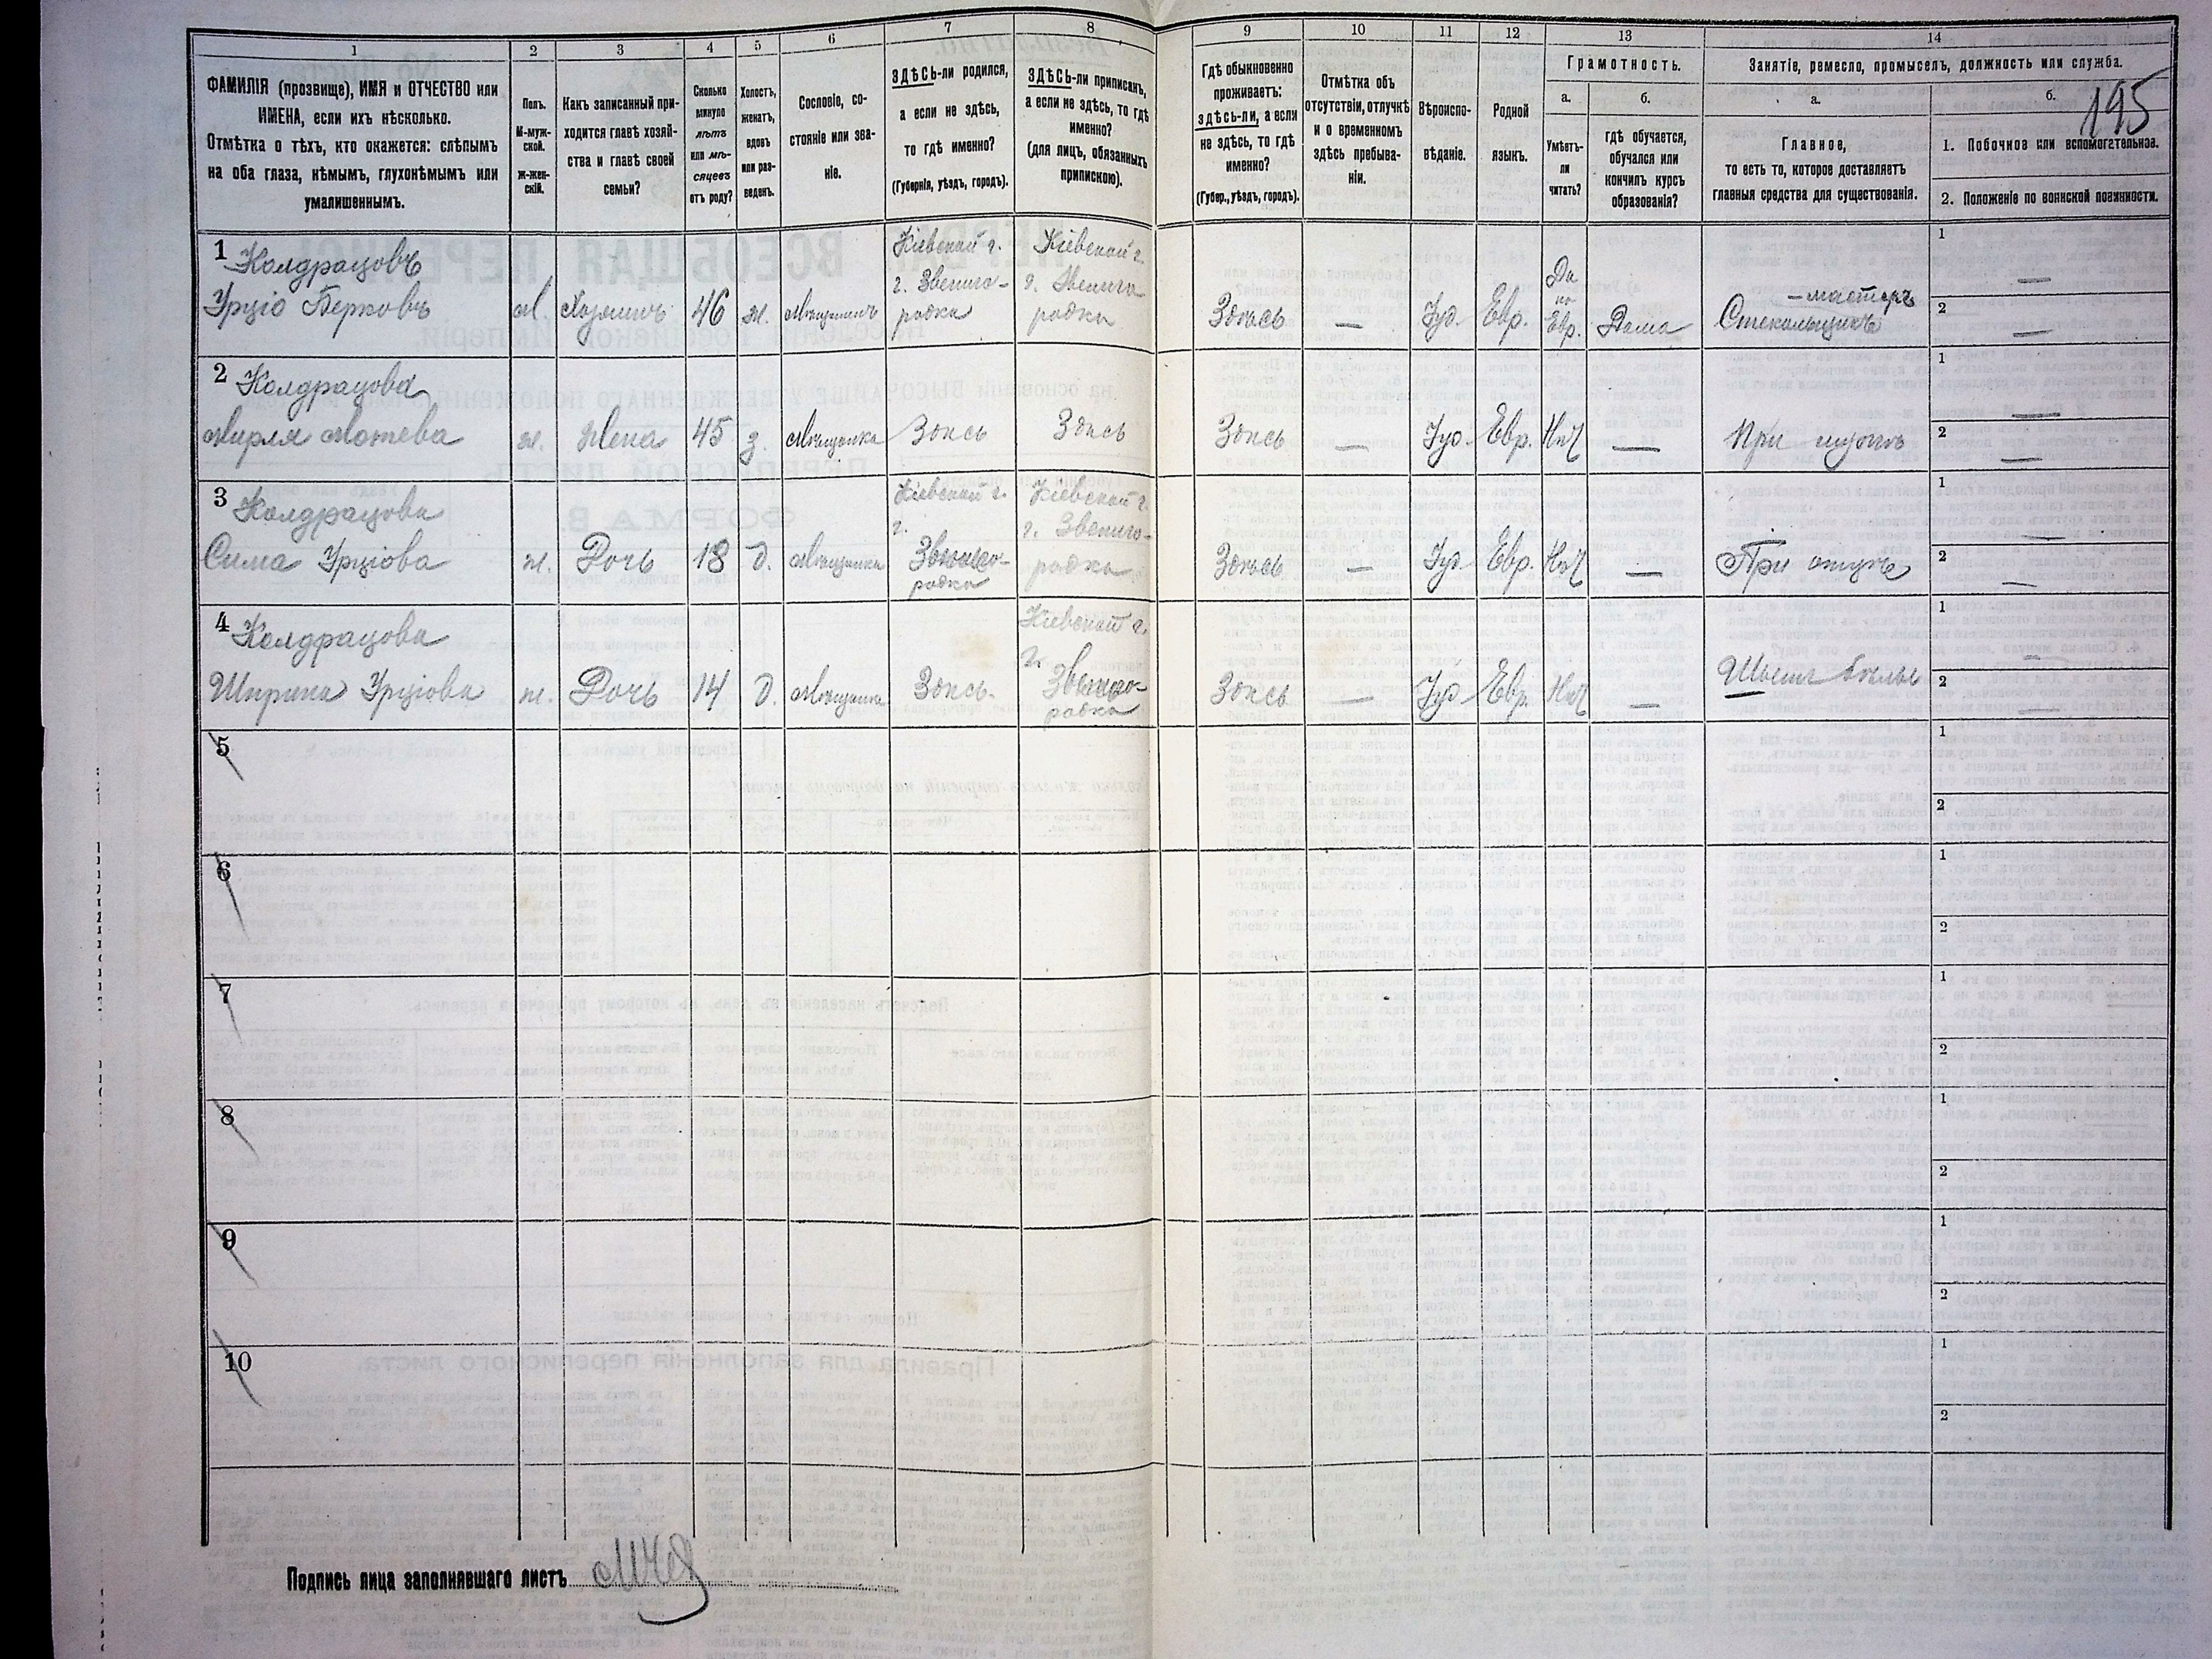 1 2 3 4 5 6 7 8 9 10 11 12 13 14
ФАМИЛІЯ (прозвище), ИМЯ и ОТЧЕСТВО или
ИМЕНА, если ихъ нѣсколько.
Отмѣтка о тѣхъ, кто окажется: слѣпымъ
на оба глаза, нѣмымъ, глухонѣмымъ или
умалишеннымъ.
Полъ.
М-муж-
ской.
ж-жен-
скій.
Какъ записанный при-
ходится главѣ хозяй-
ства и главѣ своей
семьи?
Сколько
минуло
лѣтъ
или мѣ-
сяцевъ
отъ роду?
Холостъ,
женатъ,
вдовъ
или раз-
веденъ.
Сословіе, со-
стояніе или зва-
ніе.
ЗДѢСЬ-ли родился,
а если не здѣсь,
то гдѣ именно?
(Губернія, уѣздъ, городъ).
ЗДѢСЬ-ли приписанъ,
а если не здѣсь, то гдѣ
именно?
(для лицъ, обязанныхъ
припискою).
Гдѣ обыкновенно
проживаетъ:
здѣсь-ли, а если
не здѣсь, то гдѣ
именно?
(Губер., уѣздъ, городъ).
Отмѣтка объ
отсутствіи, отлучкѣ
и о временномъ
здѣсь пребыва-
ніи.
Вѣроиспо-
вѣданіе.
Родной
языкъ.
Грамотность.
а.
Умѣетъ-
ли
читать?
б.
гдѣ обучается,
обучался или
кончилъ курсъ
образованія?
Занятіе, ремесло, промыселъ, должность или служба.
а.
Главное,
то есть то, которое доставляетъ
главныя средства для существованія.
б.
195
1. Побочное или вспомогательное.
2. Положеніе по воинской повинности.
1 Колдрацовъ
Урціо Берковъ
м. Хозяинъ 46 ж. Мѣщанинъ
Кіевской г.
г. Звениго-
родка
Кіевской г.
г. Звениго
родка
Здѣсь — Іуд. Евр.
Да
по
Евр.
Дома
-мастеръ
Стекольщикъ
1 —
2 —
2 Колдрацова
Мирля Мотева
ж. Жена 45 з. Мѣщанка Здѣсь Здѣсь Здѣсь — Іуд. Евр. Нѣт — При мужѣ
1 —
2 —
3 Колдрацова
Сима Урціова
ж. Дочь 18 д. Мѣщанка
Кіевской г.
г.
Звениго-
родка
Кіевской г.
г. Звениго-
родка
Здѣсь — Іуд Евр. Нѣт — При отцѣ
1 —
2 —
4 Колдрацова
Шприна Урціова
ж. Дочь 14 д. Мѣщанка Здѣсь.
Кіевской г.
г.
Звениго-
родка
Здѣсь — Іуд Евр. Нѣт — Шьетъ бѣлье
1 —
2 —
5
1
2
6
1
2
7
1
2
8
1
2
9
1
2
10
1
2
Подпись лица заполнявшаго листъ